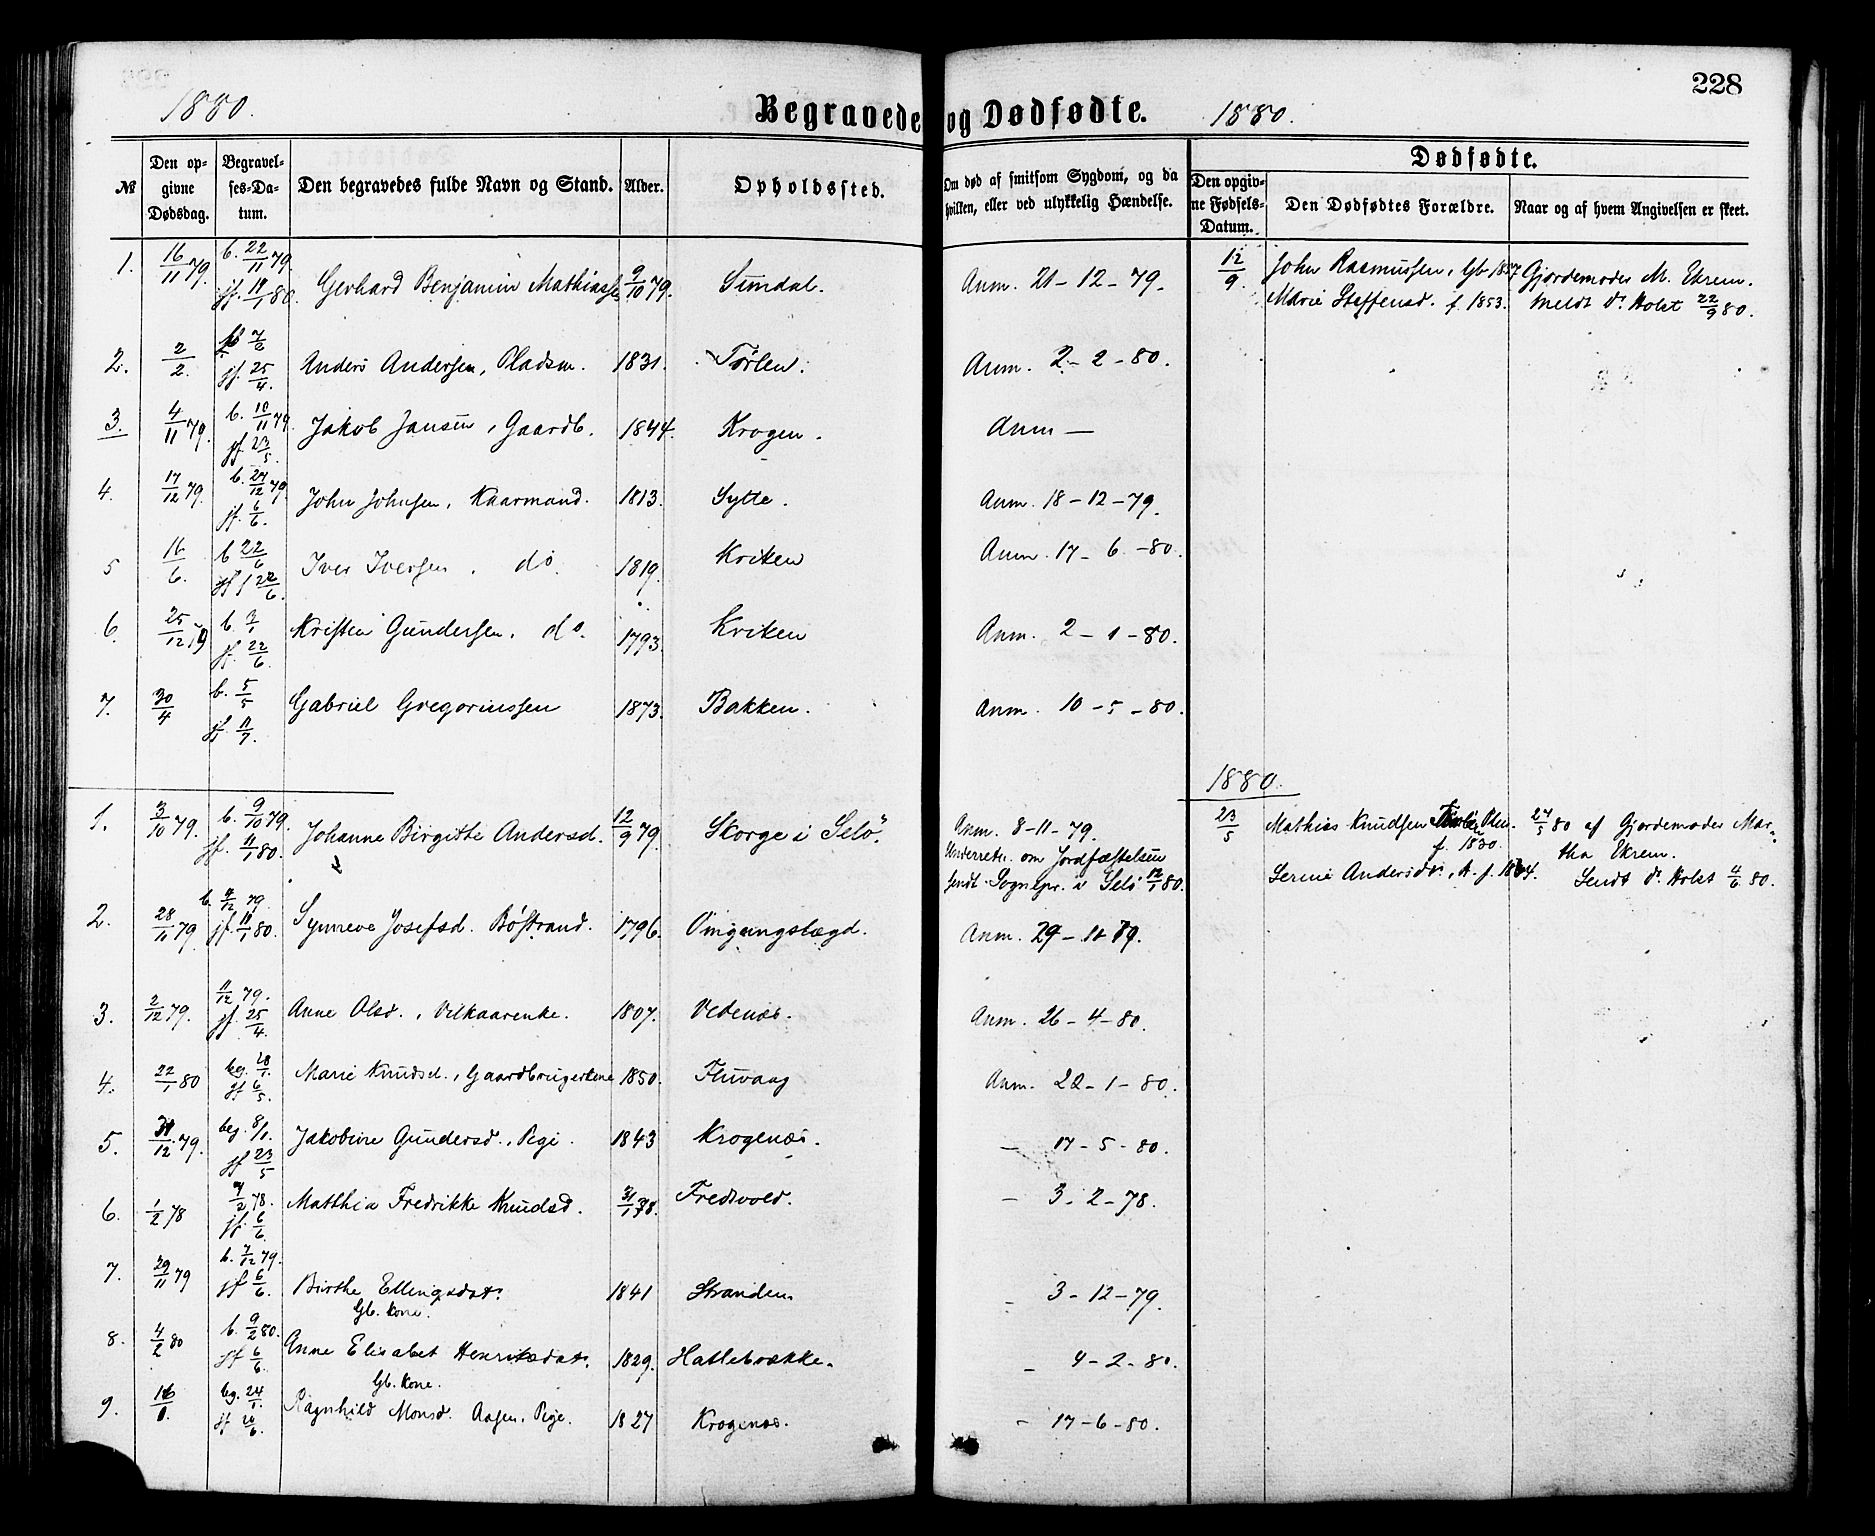 228
1880. Begravede og Dødfødte. 1880.
№ Den opgivne Dødsdag. Begravelses-Datum. Den begravedes fulde Navn og Stand. Alder. Opholdssted. Om død af smitsom Sygdom, og da hvilken, eller ved ulykkelig Hændelse. Den opgivne Fødsels-Datum. Dødfødte. Den Dødfødtes Forældre. Naar og af hvem Angivelsen er skeet.
1. 16/11 79. b. 22/11 79. jf. 18/1 80. Gerhard Benjamin Mathiass. 9/10 79. Simdal. Anm. 21-12-79. 12/9. John Rasmussen, Gb. 1857 Gjordemoder M. Ekrem.
Marie Steffensd. f. 1853. meldt Dr Holst 22/9 80.
2. 2/2. b 7/2 jf. 25/4. Anders Andersen, Pladsm. 1831. Tørlen. Anm. 2-2-80.
3. 4/11 79. b. 10/11 79. jf 23/5. Jakob Jansen, Gaardb. 1844. Krogen. Anm —
4. 17/12 79. b. 27/12 79. jf. 6/6. John Johnsen, Kaarmand. 1813. Sytte. Anm. 18-12-79.
5 16/6. b 22/6 jf 22/6. Iver Iversen. do. 1819. Kriken Anm. 17-6-80.
6. 25/12 79 b. 3/1 jf. 22/6. Kristen Gundersen. do. 1793. Kriken Anm. 2-1-80.
7. 30/4 b. 5/5 jf. 11/7. Gabriel Gregoriussen 1873. Bakken. Anm. 10-5-80.
1880.
1. 3/10 79. b. 9/10 79. jf. 11/1 80. Johanne Birgitte Andersd. 12/9 79. Skorge i Selö. Anm. 8-11-79. 23/5 Mathias Knudsen f. 1830. 27/5 80 af Gjordemoder Martha Ekrem.
Underretn. om Jordfæstelsen
sendt Sognepr. i Selö 12/1 80. Serine Andersdtr, K. f. 1864. Sendt Dr Holst 4/6 80.
2. 28/11 79 b. 4/12 79. jf. 11/1 80. Synneve Josefsd. Bøstrand. 1796. Omgangslægd. Anm. 29-11-79.
3. 2/12 79. 11/12 79. jf. 25/4. Anne Olsd., Vilkaarenke. 1807. Vedenæs. Anm. 26-4-80.
4. 22/1 80 beg. 28/1. jf 6/5. Marie Knudsd., Gaardbrugerkone 1850. Fluvaag Anm. 22-1-80.
5. 31/12 79. beg. 8/1. jf 23/5 Jakobine Gundersd., Pige. 1843 Krogenæs. — 17-5-80.
6. 1/2 78 7/2 78. jf. 6/6. Matthia Fredrikke Knudsd. 31/1 78. Fredsvold. — 3-2-78.
7. 29/11 79 b. 7/12 79. jf 6/6. Birthe Ellingsdat. 1841 Stranden — 3-12-79.
Gb. Kone.
8. 4/2 80 b. 9/2 80. jf 6/6. Anne Elisabet Henriksdat. 1829. Hatlebrække. — 4-2-80.
Gb. Kone.
9. 16/1. beg. 24/1. jf 20/6. Ragnhild Monsd. Aasen, Pige. 1827 Krogenæs. — 17-6-80.